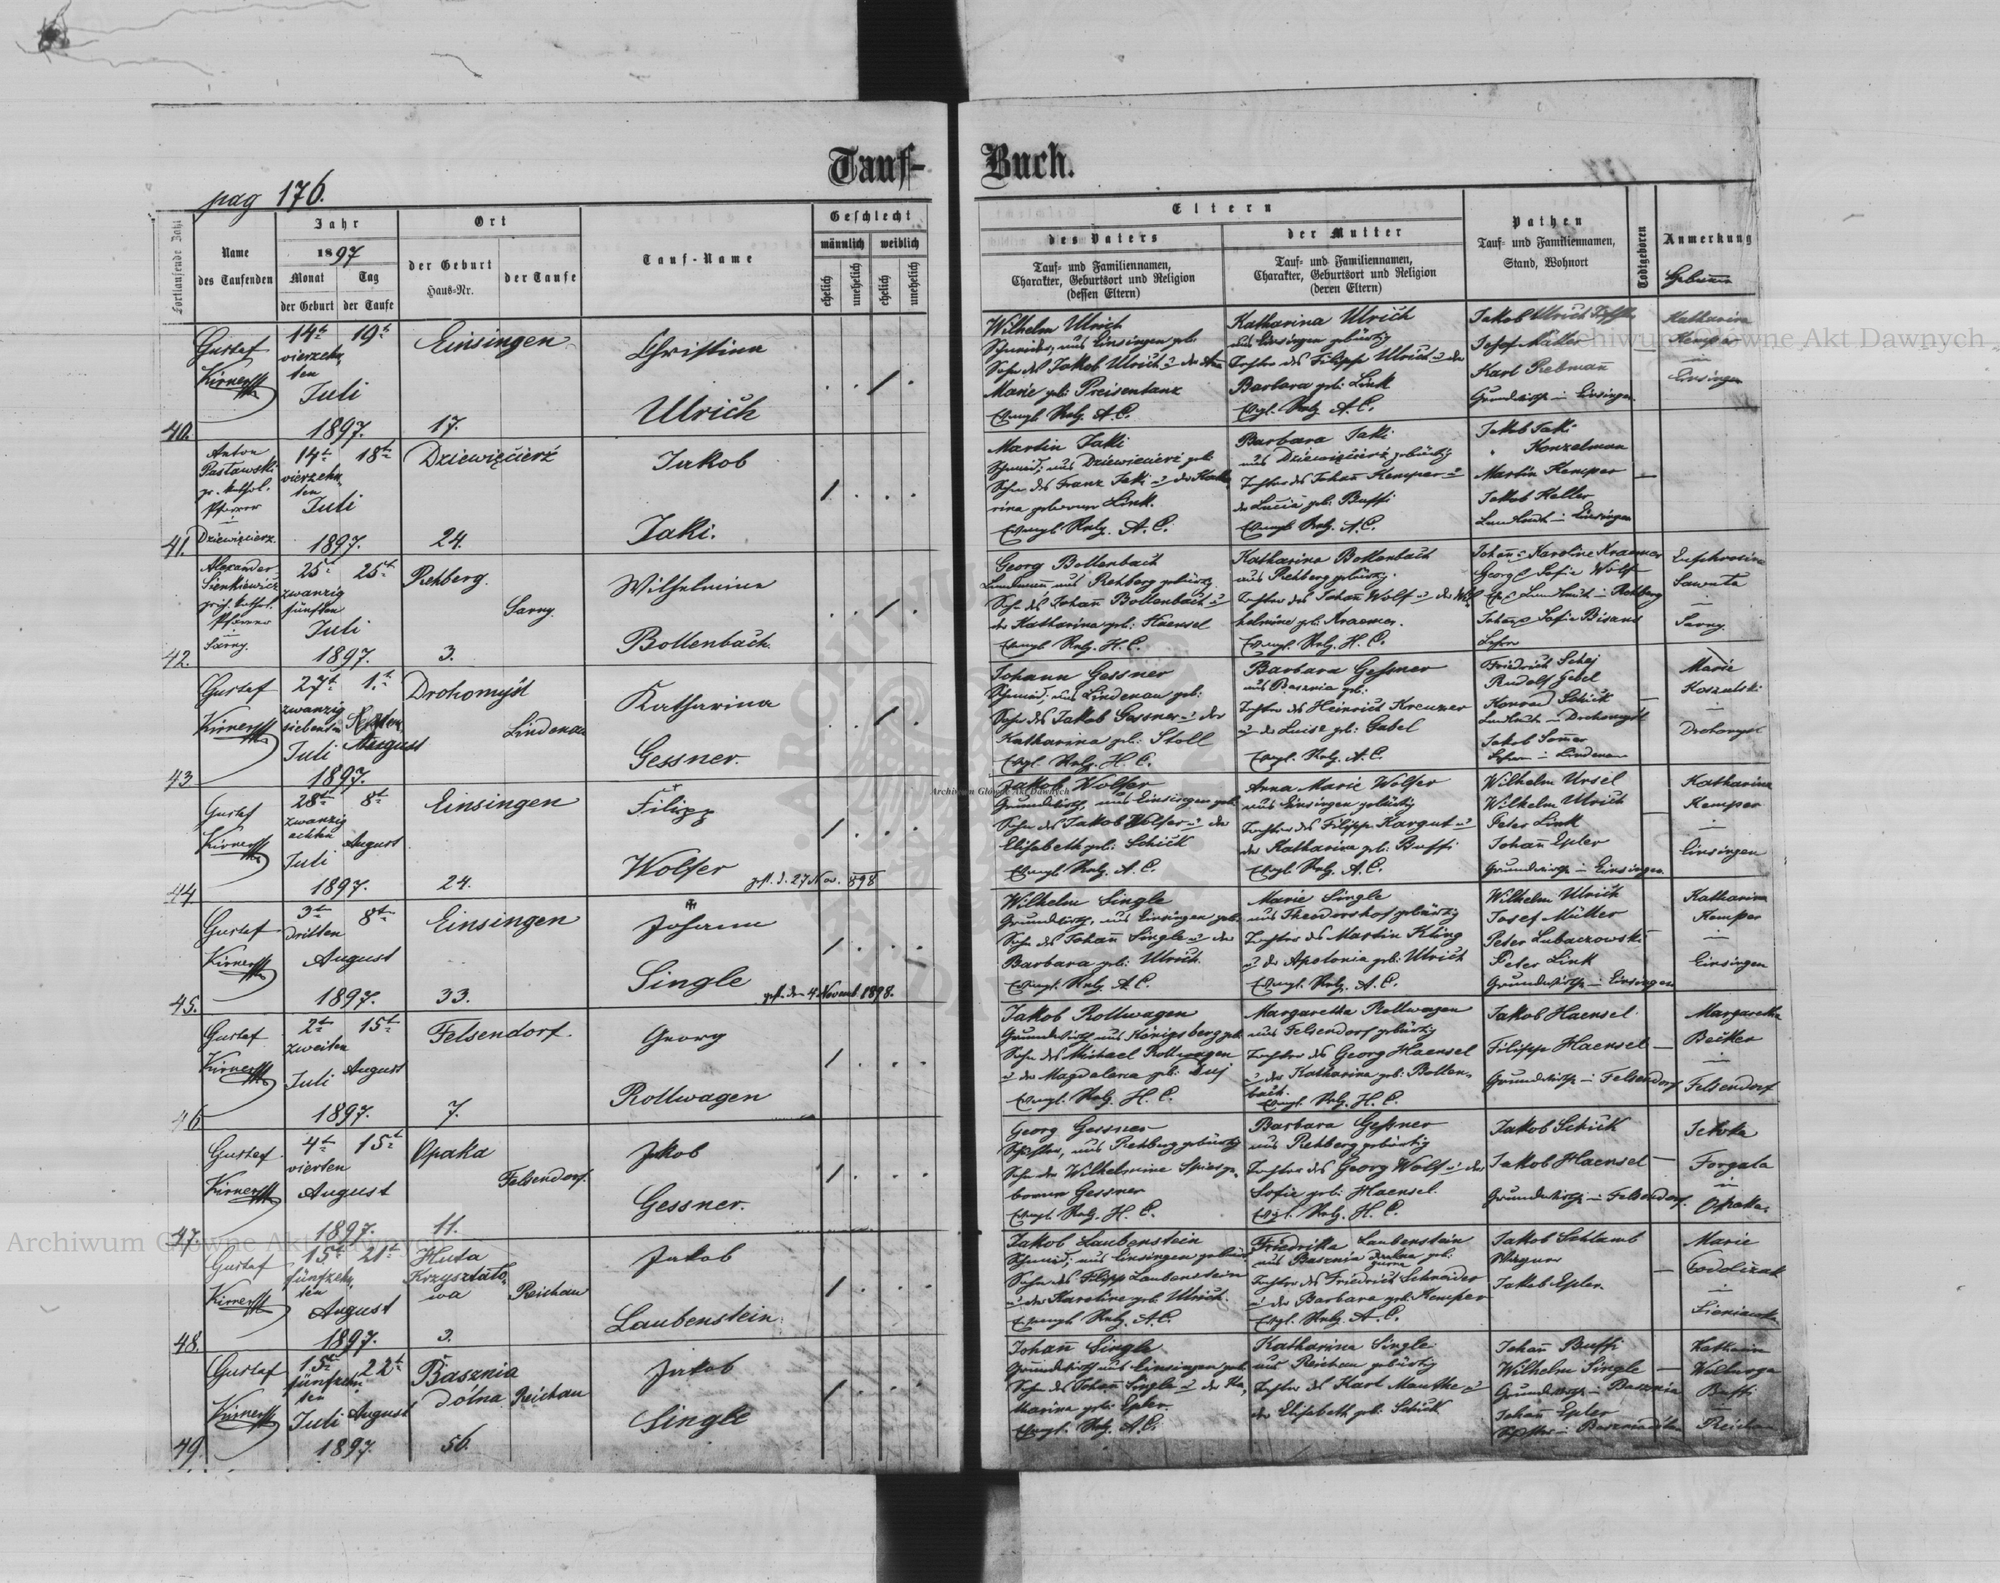 Tauf-Buch.
pag 176.
Fortlaufende Zahl
Name
des Taufenden
Jahr
1897
Monat
der Geburt
Tag
der Taufe
Ort
der Geburt
Haus-Nr.
der Taufe
Tauf-Name
Geschlecht
männlich
weiblich
ehelich
unehelich
ehelich
unehelich
Eltern
des Vaters
Tauf- und Familiennamen,
Charakter, Geburtsort und Religion
(dessen Eltern)
der Mutter
Tauf- und Familiennamen,
Charakter, Geburtsort und Religion
(deren Eltern)
Pathen
Tauf- und Familiennamen,
Stand, Wohnort
Todtgeboren
Anmerkung
40.
Gustaf
14t 19t
vierzehn
ten
Juli
1897.
Einsingen
17.
Christina
Ulrich
Wilhelm Ulrich
Schneider, aus Einsingen geb.
Sohn des Jakob Ulrich u der Anna
Marie geb: Preisentanz
Evangl. Relg. A. C.
Katharina Ulrich
aus Einsingen gebürtig
Tochter des Filipp Ulrich u der
Barbara geb: Link
Evgl. Relg. A. C.
Jakob Ulrich
Josef Müller
Karl Rebmann
Grundwirthe in Einsingen
Katharina
Kemper
in
Einsingen
41.
Anton
Pastawski
gr. kathol.
Pfarrer
in
Dziewięcierz.
14t 18t
vierzehn
ten
Juli
1897.
Dziewięcierź
24.
Jakob
Jaki.
Martin Jaki
Schmied, aus Dziewięcierź geb:
Sohn des Franz Jaki u der Katha
rina geborenen Link.
Evangl. Relg. A. C.
Barbara Jaki
aus Dziewięcierź gebürtig
Tochter des Johann Kemper u
der Lucia geb: Buffi
Evangl. Relg. A. C.
Jakob Jaki
" Konzelman
Martin Kemper
Jakob Keller
Landleute in Einsingen
42.
Alexander
Sienkiewicz
griech. kathol.
Pfarrer
in
Sarny.
25t 25t
zwanzig
fünften
Juli
1897.
Rehberg.
3.
Sarny.
Wilhelmine
Bollenbach.
Georg Bollenbach
Landmann, aus Rehberg gebürtig
Sohn des Johann Bollenbach u
der Katharina geb: Haensel
Evangl. Relg. H. C.
Katharina Bollenbach
aus Rehberg gebürtig.
Tochter des Johann Wolf u der Wil
helmine geb: Kraemer.
Evangl. Relg. H. C.
Johann u Karoline Kraemer
Georg u Sofie Wolf
Landleute in Rehberg
Johann u Sofie Bisanz
Lehrer
Euphrosine
Sawuta
in
Sarny.
43.
Gustaf
27t 1t
zwanzig
siebenten
Juli August
1897.
Drohomyśl
Lindenau
Katharina
Gessner.
Johann Gessner
Schmied, aus Lindenau geb:
Sohn des Jakob Gessner u der
Katharina geb: Stoll
Evgl. Relg. H. C.
Barbara Geßner
aus Basznia geb:
Tochter des Heinrich Kreuzer
u der Luise geb: Gabel
Evangl. Relg. A. C.
Friedrich Schej
Rudolf Gabel
Konrad Schick
Landleute in Drohomyśl
Jakob Sommer
Lehrer in Lindenau
Marie
Koszulski
in
Drohomyśl
44.
Gustaf
28t 8t
zwanzig
achten
August
Juli
1897.
Einsingen
24.
Filipp
Wolfer
gest. d. 27 Nov. 898
Jakob Wolfer
Grundwirth, aus Einsingen geb:
Sohn des Jakob Wolfer u der
Elisabeth geb: Schick
Evangl. Relg. A. C.
Anna Marie Wolfer
aus Einsingen gebürtig
Tochter des Filipp Kargut u
der Katharina geb: Buffi
Evgl. Relg. A. C.
Wilhelm Ursel
Wilhelm Ulrich
Peter Link
Johann Epler
Grundwirthe in Einsingen
Katharina
Kemper
in
Einsingen
45.
Gustaf
3t 8t
dritten
August
1897.
Einsingen
33.
Johann
Single
gest. den 4 Novemb 1898.
Wilhelm Single
Grundwirth, aus Einsingen geb:
Sohn des Johann Single u der
Barbara geb: Ulrich.
Evangl. Relg. A. C.
Marie Single
aus Theodorshof gebürtig
Tochter des Martin Kling
u der Apolonia geb: Ulrich
Evangl. Relg. A. C.
Wilhelm Ulrich
Josef Müller
Peter Lubaczowski
Peter Link
Grundwirthe in Einsingen
Katharina
Kemper
in
Einsingen
46
Gustaf
2t 15t
zweiten
Juli August
1897.
Felsendorf.
7.
Georg
Rollwagen
Jakob Rollwagen
Grundwirth aus Königsberg geb.
Sohn des Michael Rollwagen
u der Magdalena geb: Duj
Evangl. Relg. H. C.
Margaretha Rollwagen
aus Felsendorf gebürtig
Tochter des Georg Haensel
u der Katharina geb: Bollen
bach.
Evangl. Relg. H. C.
Jakob Haensel
Filipp Haensel
Grundwirthe in Felsendorf
Margaretha
Becker
in
Felsendorf
47.
Gustaf
4t 15t
vierten
August
1897.
Opaka
11.
Felsendorf.
Jakob
Gessner.
Georg Gessner
aus Rehberg gebürtig
Sohn der Wilhelmine Spies ge
borenen Gessner
Evangl. Relg. H. C.
Barbara Geßner
aus Rehberg gebürtig
Tochter des Georg Wolf u der
Sofie geb: Haensel.
Evgl. Relg. H. C.
Jakob Schick
Jakob Haensel
Grundwirthe in Felsendorf.
Tekla
Forgala
in
Opaka.
48.
Gustaf
15t 21t
fünfzehn
ten
August
1897.
Huta
Krzyształo
wa
3.
Reichau
Jakob
Laubenstein
Jakob Laubenstein
Schmied, aus Einsingen gebürtig
Sohn des Filipp Laubenstein
u der Karoline geb Ulrich.
Evangl. Relg. A. C.
Friedrika Laubenstein
aus Basznia geb:
Tochter des Friedrich Schneider
u der Barbara geb: Kemper
Evgl. Relg. A. C.
Jakob Schlamb
Wagner
Jakob Epler
Marie
in
49.
Gustaf
15t 22t
fünfzehn
ten
Juli August
1897.
Basznia
dolna
56.
Reichau
Jakob
Single
Johann Single
Grundwirth aus Einsingen geb
Sohn des Johann Single u der Ka
tharina geb: Epler.
Evangl. Relg. A. C.
Katharina Single
aus Reichau gebürtig
Tochter des Karl Manthe u
der Elisabeth geb: Schick
Johann Buffi
Wilhelm Single
Grundwirthe in Basznia
Johann Epler
in Basznia dolna
Walburga
Buffi
in
Reichau
Archiwum Główne Akt Dawnych
Archiwum Główne Akt Dawnych
Archiwum Główne Akt Dawnych